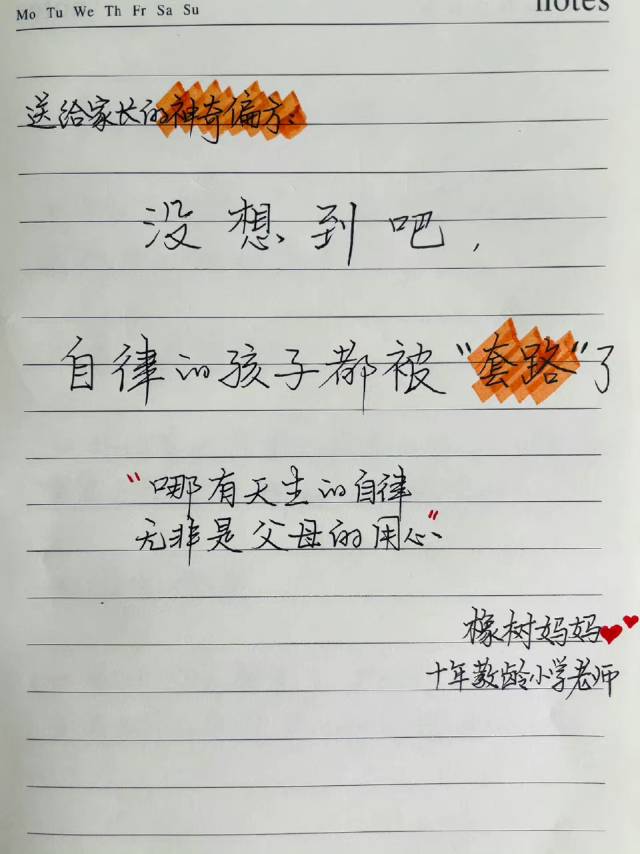 Mo Tu We Th Fr Sa Su
notes
送给家长的神奇偏方：
没想到吧，
自律的孩子都被“套路”了
“哪有天生的自律
无非是父母的用心”
橡树妈妈
十年教龄小学老师